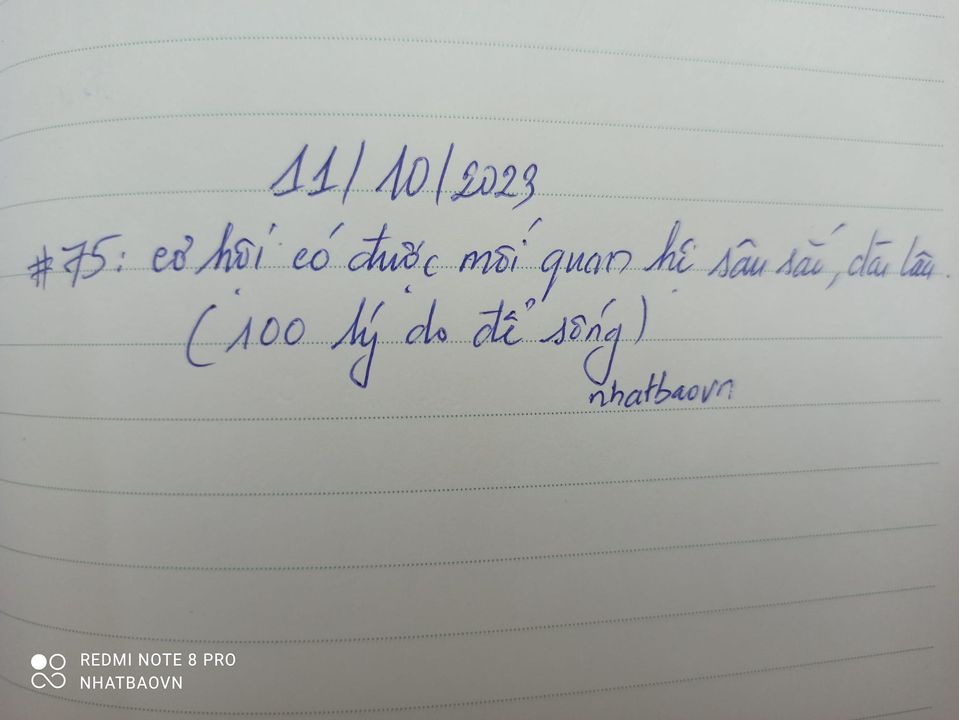 11/10/2023
#75: cơ hội có được mối quan hệ sâu sắc, dài lâu.
(100 lý do để sống)
nhatbaovn
REDMI NOTE 8 PRO
NHATBAOVN